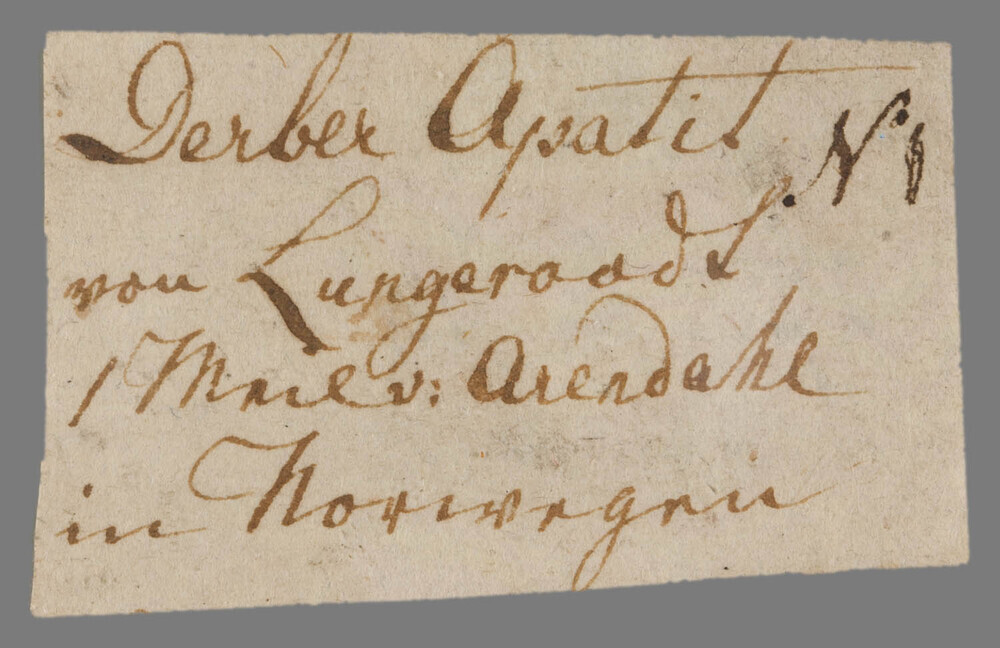 Derber Apatit N: 1
von Lungeraadt
1 Meil v: Arendahl
in Norwegen